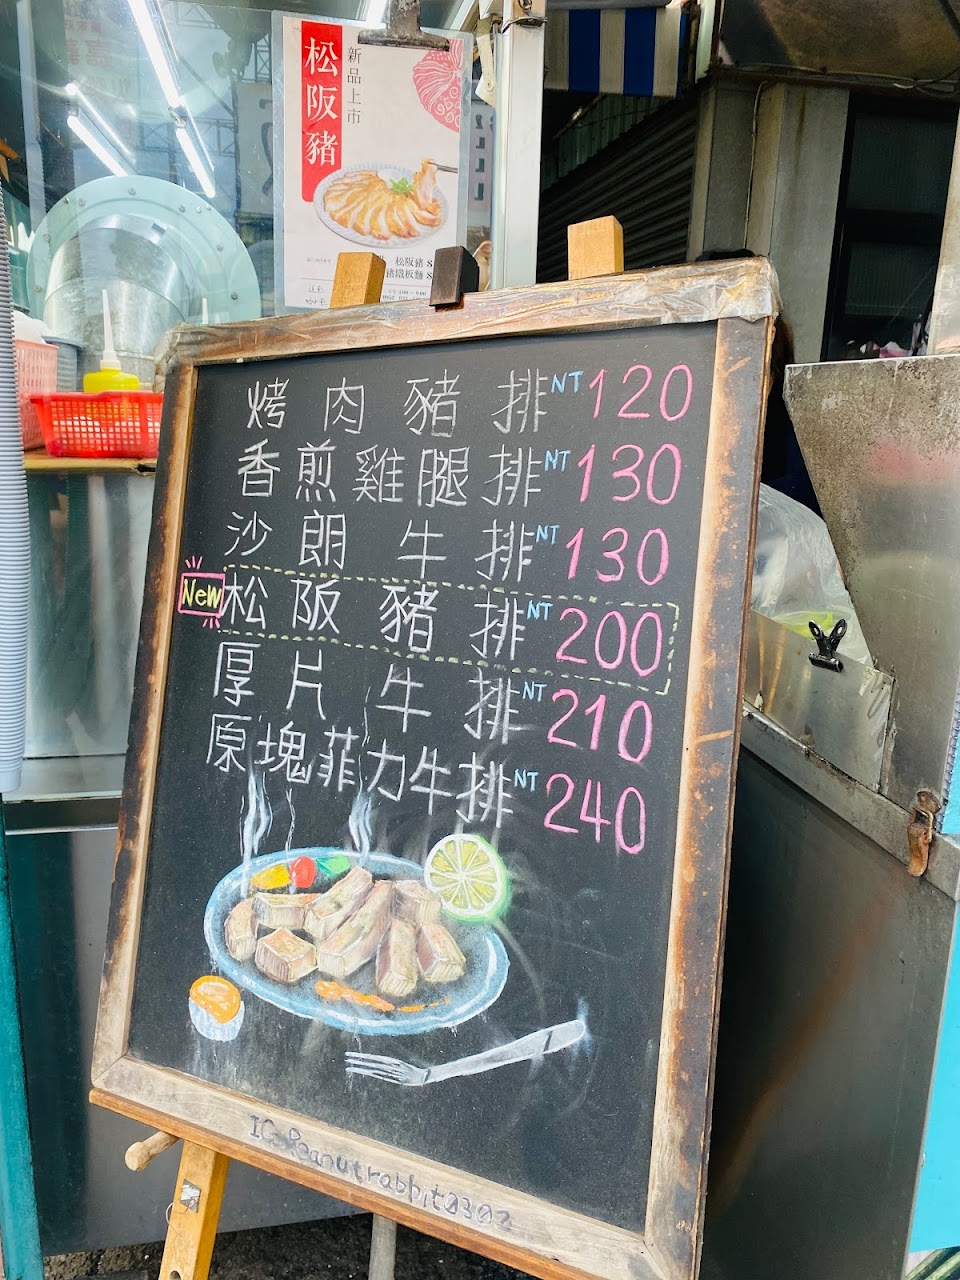 松阪豬
新品上市
松阪豬
烤肉豬排NT120
香煎雞腿排NT130
沙朗牛排NT130
New松阪豬排NT200
厚片牛排NT210
原塊菲力牛排NT240
IG Peanutrabbit0302